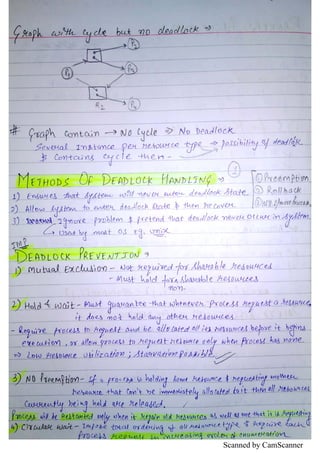 Graph with cycle but no deadlock
R1
R2
# Graph contain → No Cycle ⇒ No Deadlock
Several Instance per resource type → possibility of deadlock
& contains cycle then -
METHODS OF DEADLOCK HANDLING
① Preemption
② Rollback
1) Ensures that system will never enter deadlock state
2) Allow system to enter deadlock state & then recover
3) Ignore problem & pretend that deadlock never occurs in system.
↳ Used by most OS eg. unix
DEADLOCK PREVENTION
1) Mutual Exclusion - Not required for sharable resources
- Must hold for sharable resources
non.
2) Hold & Wait - Must guarantee that whenever process request a resource,
it does not hold any other resources.
- Require process to request and be allocated all its resources before it begins
execution, or allow process to request resource only when process has none
⇒ Low Resource utilization; Starvation possible
3) NO Preemption - If a process holding some resource & requesting another
resource that can't be immediately allocated to it then all resources
currently being held are released.
Process will be Restarted only when it regain old resources as well as one that is is Requesting
4) Circular wait - Impose total ordering of all resource type & require each
process in increasing order of enumeration
Scanned by CamScanner